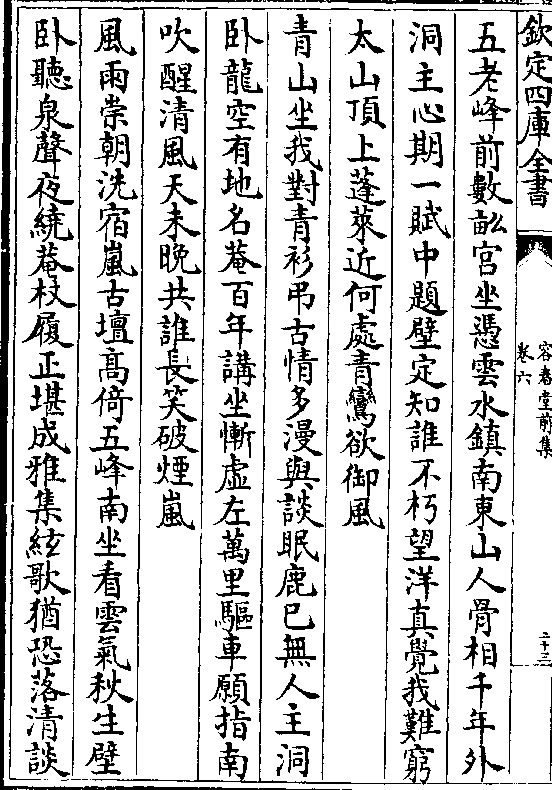 欽定四庫全書
容春堂前集
卷六
二十三
五老峰前數畝宮坐憑雲水鎮南東山人骨相千年外
洞主心期一賦中題壁定知誰不朽望洋真覺我難窮
太山頂上蓬萊近何處青鸞欲御風
青山坐我對青衫弔古情多漫與談眠鹿已無人主洞
卧龍空有地名菴百年講坐慚虛左萬里驅車願指南
吹醒清風天未晚共誰長笑破煙嵐
風雨崇朝洗宿嵐古壇髙倚五峰南坐看雲氣秋生壁
卧聽泉聲夜繞菴杖履正堪成雅集絃歌猶恐落清談